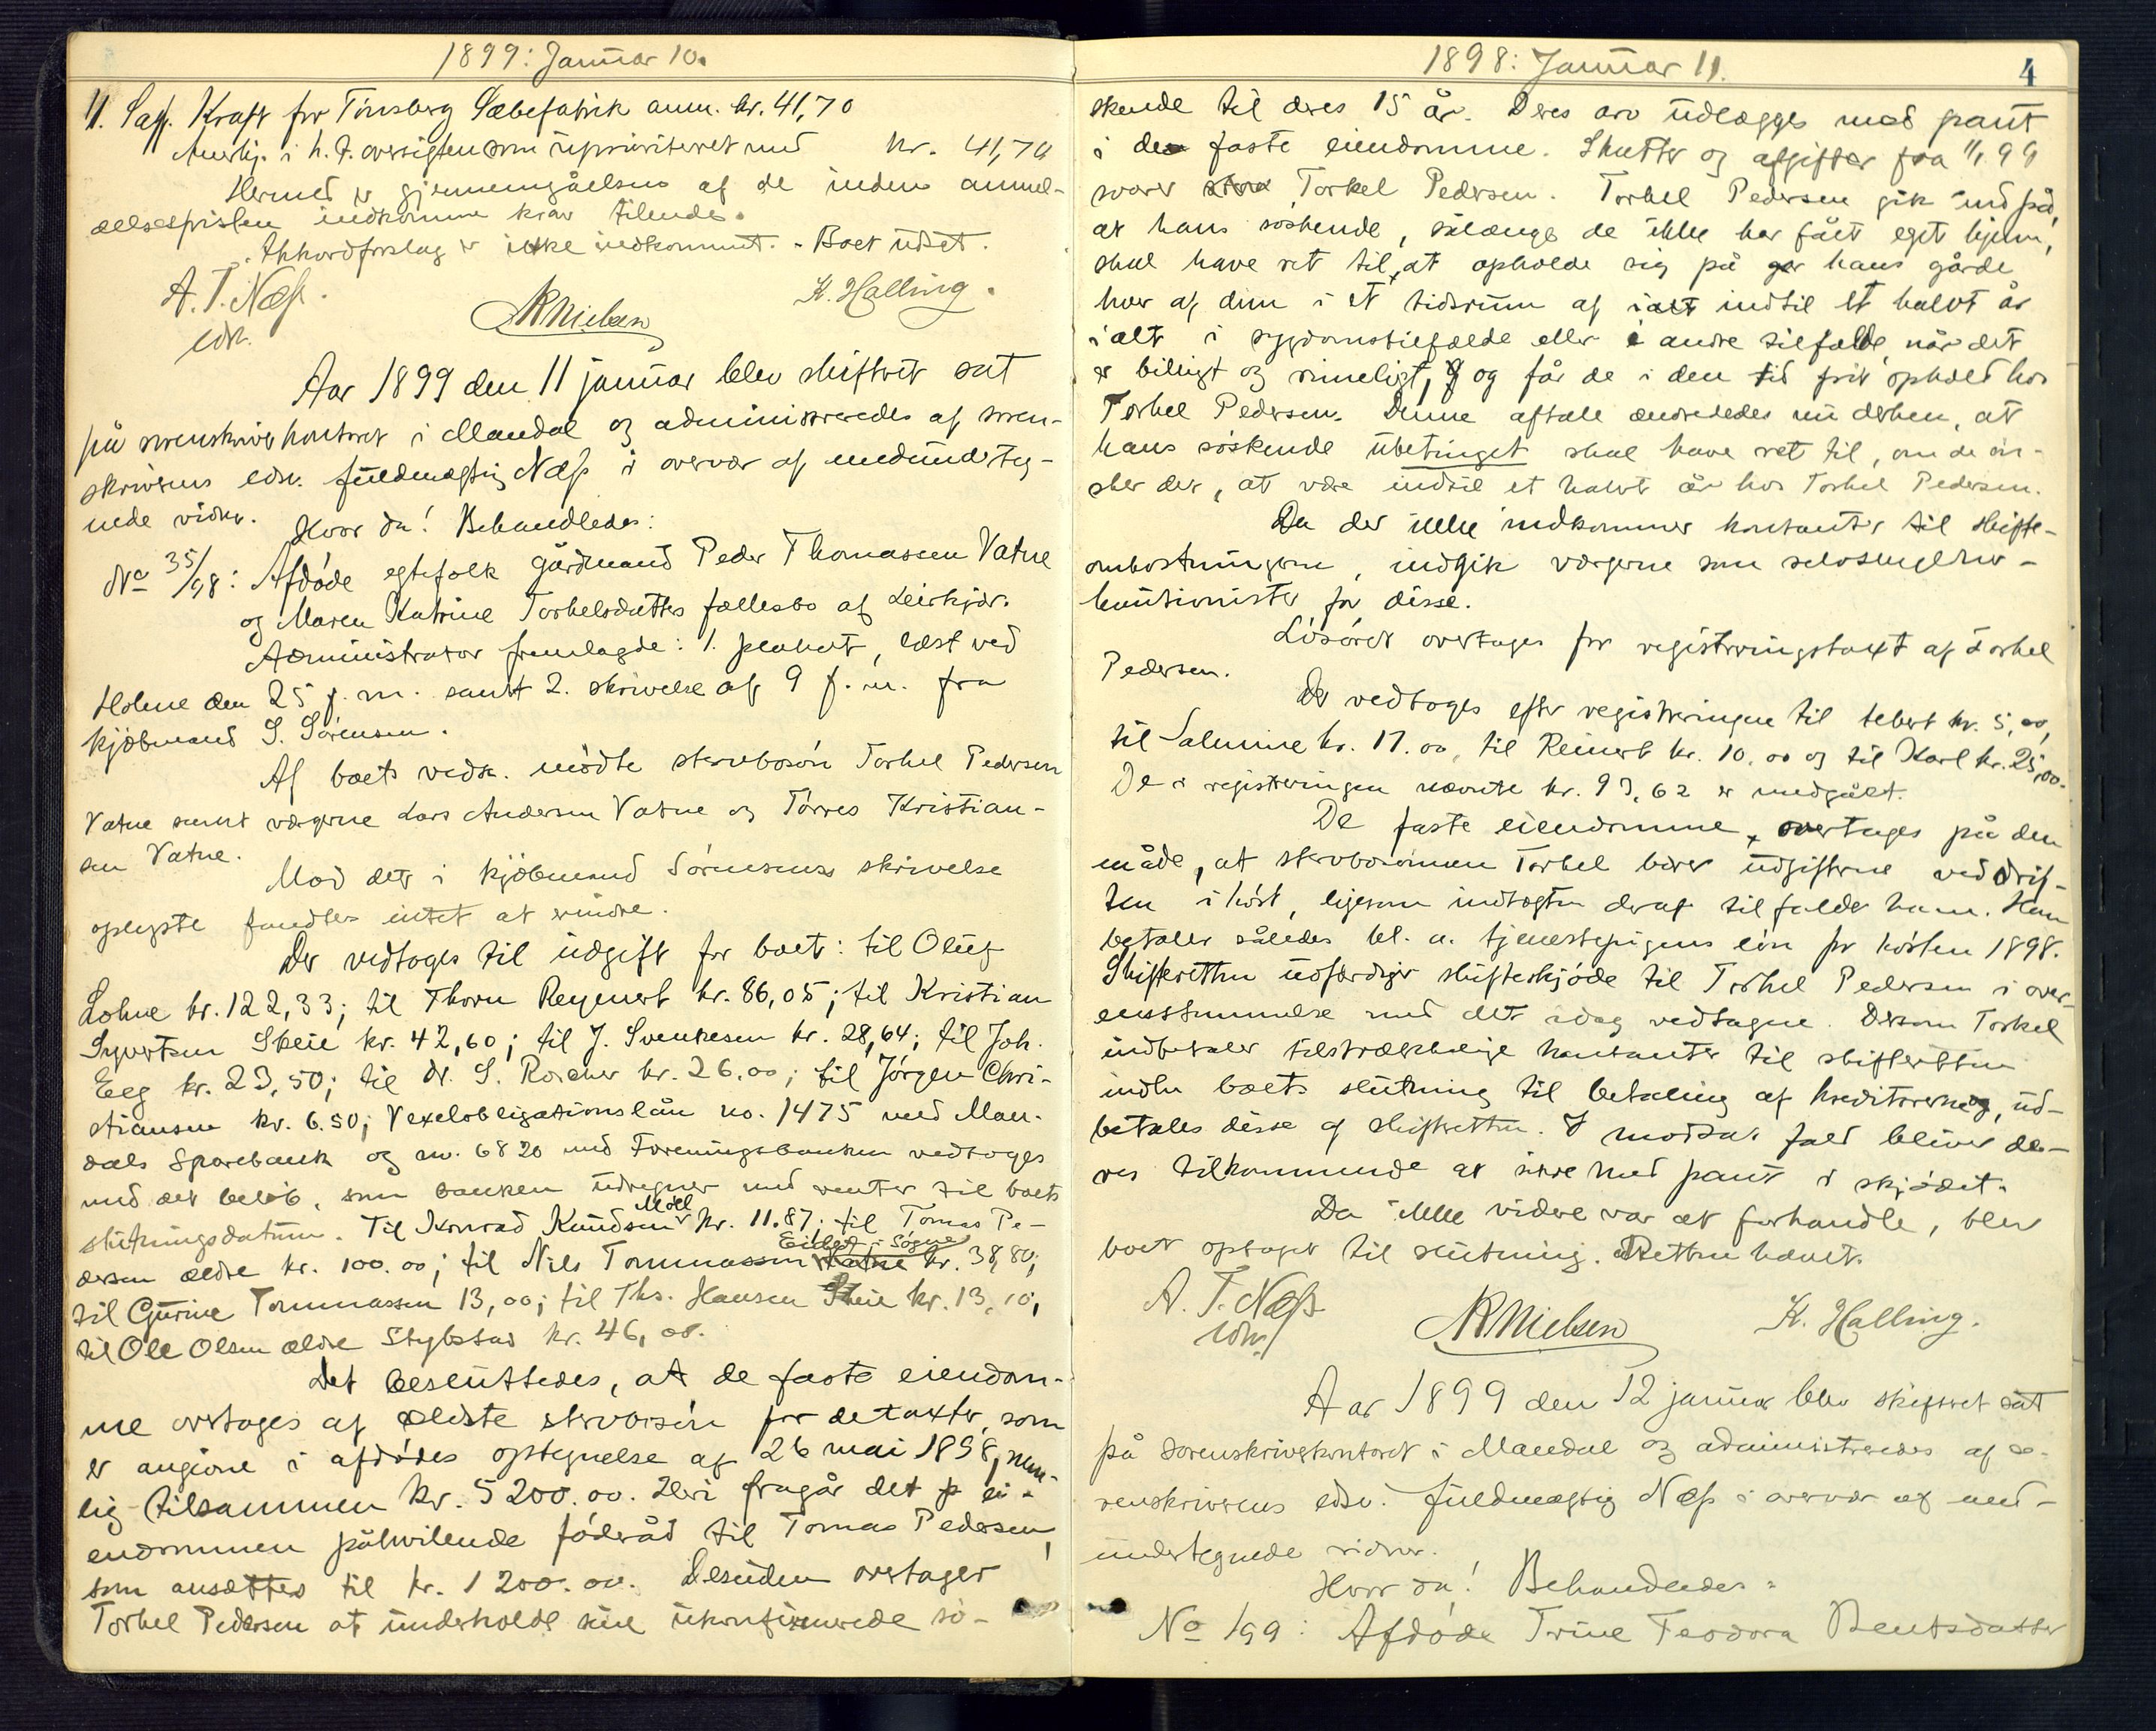 1899: Januar 10.
11. Sagf. Kraft for Tönsberg Sæbefabrik anm. kr. 41,70
Anerkj. i h. t. oversigten som uprioriteret med kr. 41,70
Hermed er gjennemgåelsen af de inden anmel-
delsesfristen indkomne krav tilende.
Akkordforslag er ikke indkommet. - Boet udsat.
A. T. Næss.
edsv.
NNielsen
K. Halling.
Aar 1899 den 11 januar blev skifteret sat
på sorenskriverkontoret i Mandal og administreredes af soren-
skriverens edsv. fuldmægtig Næss i overvær af medunderteg-
nede vidner.
Hvor da! Behandledes:
No 35/98: Afdöde egtefolk gårdmand Peder Thomassen Vatne
og Maren Katrine Torkelsdatters fællesbo af Leirkjær.
Administrator fremlagde: 1. plakat, læst ved
Holme den 25 f. m. samt 2. skrivelse af 9 f. m. fra
kjöbmand S. Sörensen.
Af boets vedk. mödte stervbosön Torkel Pedersen
Vatne samt værgerne Lars Andersen Vatne og Törres Kristian-
sen Vatne.
Mod det i kjöbmand Sörensens skrivelse
oplyste fandtes intet at erindre.
Der vedtoges til udgift for boet: til Oluf
Lohne kr. 122,33; til Thorn Reynert kr. 86,05; til Kristian
Syvertsen Skeie kr. 42,60; til J. Svenkesen kr. 28,64; til Joh.
Eeg kr. 23,50; til Dr. S. Roscher kr. 26.00; til Jörgen Chri-
stiansen kr. 6.50; Vexelobligationslån no. 1475 med Man-
dals Sparebank og no. 6820 med Foreningsbanken vedtoges
med det belöb, som banken udregner med renter til boets
slutningsdatum. Til Konrad Knudsen Möll kr. 11.87; til Tomas Pe-
dersen ældre kr. 100.00; til Nils Tommassen Vatne Eitland i Søgne kr. 38,80;
til Gurine Tommassen 13,00; til Ths. Hansen Skeie kr. 13,10;
til Ole Olsen ældre Stubstad kr. 46,00.
Det besluttedes, at de faste eiendom-
me overtages af ældste stervbosön for de taxter, som
er angivne i afdödes optegnelse af 26 mai 1898, nem-
lig tilsammen kr. 5200.00. Heri fragår det på ei-
endommen påhvilende föderåd til Tomas Pedersen,
som ansættes til kr. 1200.00. Desuden overtager
Torkel Pedersen at underholde sine ukonfirmerede sö-
1898: Januar 11.
4
skende til deres 15 år. Deres arv udlægges med pant
i de faste eiendomme. Skatter og afgifter fra 1/1 99
svarer Torkel Pedersen. Torkel Pedersen gik ind på,
at hans söskende, sålænge de ikke har fået eget hjem,
skal have ret til at opholde sig på hans gårde
hver af dem i et tidsrum af indtil et halvt år
ialt i sygdomstilfælde eller i andre tilfælde, når det
er billigt og rimeligt, og får de i den tid frit ophold hos
Torkel Pedersen. Denne aftale ændrededes nu derhen, at
hans söskende ubetinget skal have ret til, om de ön-
sker det, at være indtil et halvt år hos Torkel Pedersen.
Da der ikke indkommer kontanter til skifte-
omkostningerne, indgik værgerne som selvskyldner-
kautionister for disse.
Lösöret overtages for registreringstaxt af Torkel
Pedersen.
Der vedtoges efter registreringen til Tebert kr. 5,00,
til Salmine kr. 17.00, til Reinert kr. 10.00 og til Karl kr. 25,00.
De i registreringen nævnte kr. 93,62 er medgået.
De faste eiendomme overtages på den
måde, at stervbosönnen Torkel bærer udgifterne ved drif-
ten i höst, ligesom indtægten deraf tilfalder ham. Han
betaler således bl. a. tjenestepigens lön for hösten 1898.
Skifteretten udfærdiger skifteskjöde til Torkel Pedersen i over-
ensstemmelse med det idag vedtagne. Dersom Torkel
indbetaler tilstrækkelige kontanter til skifteretten
inden boets slutning til betaling af kreditorerne, ud-
betales disse af skifteretten. I modsat fald bliver de-
res tilkommende at sikre med pant i skjödet.
Da ikke videre var at forhandle, blev
boet optaget til slutning. Retten hævet.
A. T. Næss
edsv.
NNielsen
K. Halling.
Aar 1899 den 12 januar blev skifteret sat
på sorenskriverkontoret i Mandal og administreredes af so-
renskriverens edsv. fuldmægtig Næss i overvær af med-
undertegnede vidner.
Hvor da! Behandledes:
No 1/99: Afdöde Trine Teodora Bentsdatter